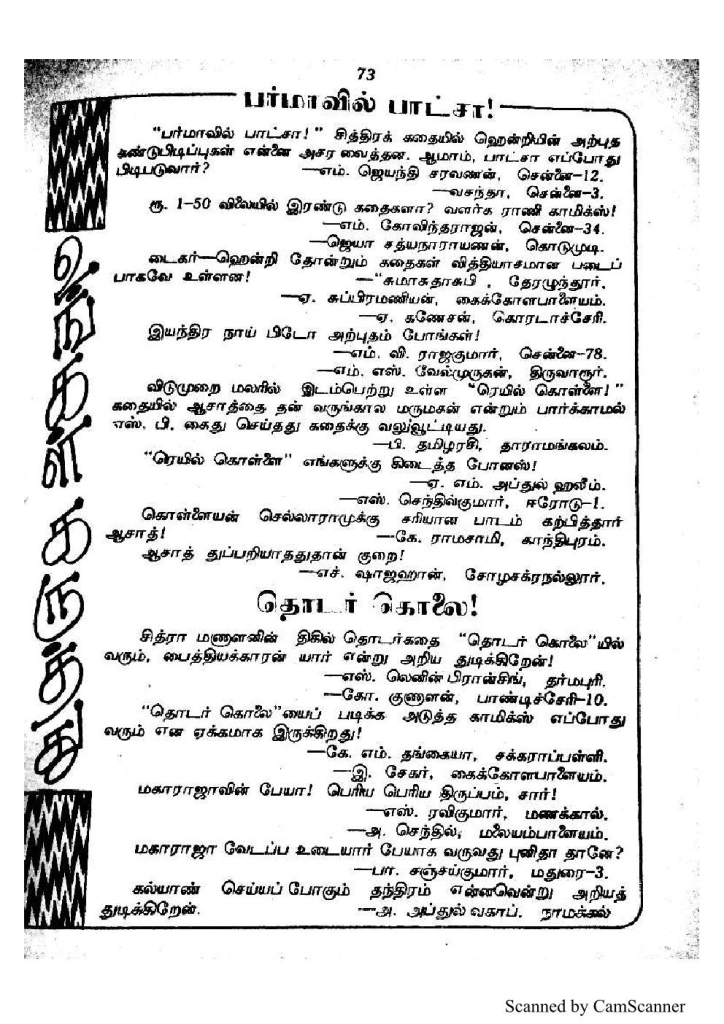 73
பர்மாவில் பாட்சா!
"பர்மாவில் பாட்சா!" சித்திரக் கதையில் ஹென்றியின் அற்புத
கண்டுபிடிப்புகள் என்னை அசர வைத்தன. ஆமாம், பாட்சா எப்போது
பிடிபடுவார்? —எம். ஜெயந்தி சரவணன், சென்னை—12.
—வசந்தா, சென்னை—3.
ரூ. 1-50 விலையில் இரண்டு கதைகளா? வளர்க ராணி காமிக்ஸ்!
—எம். கோவிந்தராஜன், சென்னை—34.
—ஜெயா சத்யநாராயணன், கொடுமுடி.
டைகர்—ஹென்றி தோன்றும் கதைகள் வித்தியாசமான படைப்
பாகவே உள்ளன! —"சுமாசுதாசுபி , தேரழுந்தூர்.
—ஏ. சுப்பிரமணியன், கைக்கோளபாளையம்.
—ஏ. கணேசன், கொரடாச்சேரி.
இயந்திர நாய் பிடோ அற்புதம் போங்கள்!
—எம். வி. ராஜகுமார், சென்னை—78.
—எம். எஸ். வேல்முருகன், திருவாரூர்.
விடுமுறை மலரில் இடம்பெற்று உள்ள "ரெயில் கொள்ளை!"
கதையில் ஆசாத்தை தன் வருங்கால மருமகன் என்றும் பார்க்காமல்
எஸ். பி. கைது செய்தது கதைக்கு வலுவூட்டியது.
—பி. தமிழரசி, தாராமங்கலம்.
"ரெயில் கொள்ளை" எங்களுக்கு கிடைத்த போனஸ்!
—ஏ. எம். அப்துல் ஹலீம்.
—எஸ். செந்தில்குமார், ஈரோடு—1.
கொள்ளையன் செல்லாராமுக்கு சரியான பாடம் கற்பித்தார்
ஆசாத்! —கே. ராமசாமி, காந்திபுரம்.
ஆசாத் துப்பறியாததுதான் குறை!
—எச். ஷாஜஹான், சோழசக்ரநல்லூர்.
தொடர் கொலை!
சித்ரா மணாளனின் திகில் தொடர்கதை "தொடர் கொலை"யில்
வரும், பைத்தியக்காரன் யார் என்று அறிய துடிக்கிறேன்!
—எஸ். லெனின் பிரான்சிங், தர்மபுரி.
—கோ. குணாளன், பாண்டிச்சேரி—10.
"தொடர் கொலை"யைப் படிக்க அடுத்த காமிக்ஸ் எப்போது
வரும் என ஏக்கமாக இருக்கிறது!
—கே. எம். தங்கையா, சக்கராப்பள்ளி.
—இ. சேகர், கைக்கோளபாளையம்.
மகாராஜாவின் பேயா! பெரிய பெரிய திருப்பம், சார்!
—எஸ். ரவிகுமார், மணக்கால்.
—அ. செந்தில், மலையம்பாளையம்.
மகாராஜா வேடப்ப உடையார் பேயாக வருவது புனிதா தானே?
—பா. சஞ்சய்குமார், மதுரை—3.
கல்யாண் செய்யப் போகும் தந்திரம் என்னவென்று அறியத்
துடிக்கிறேன். —அ. அப்துல் வகாப். நாமக்கல்
உங்கள் கருத்து
Scanned by CamScanner